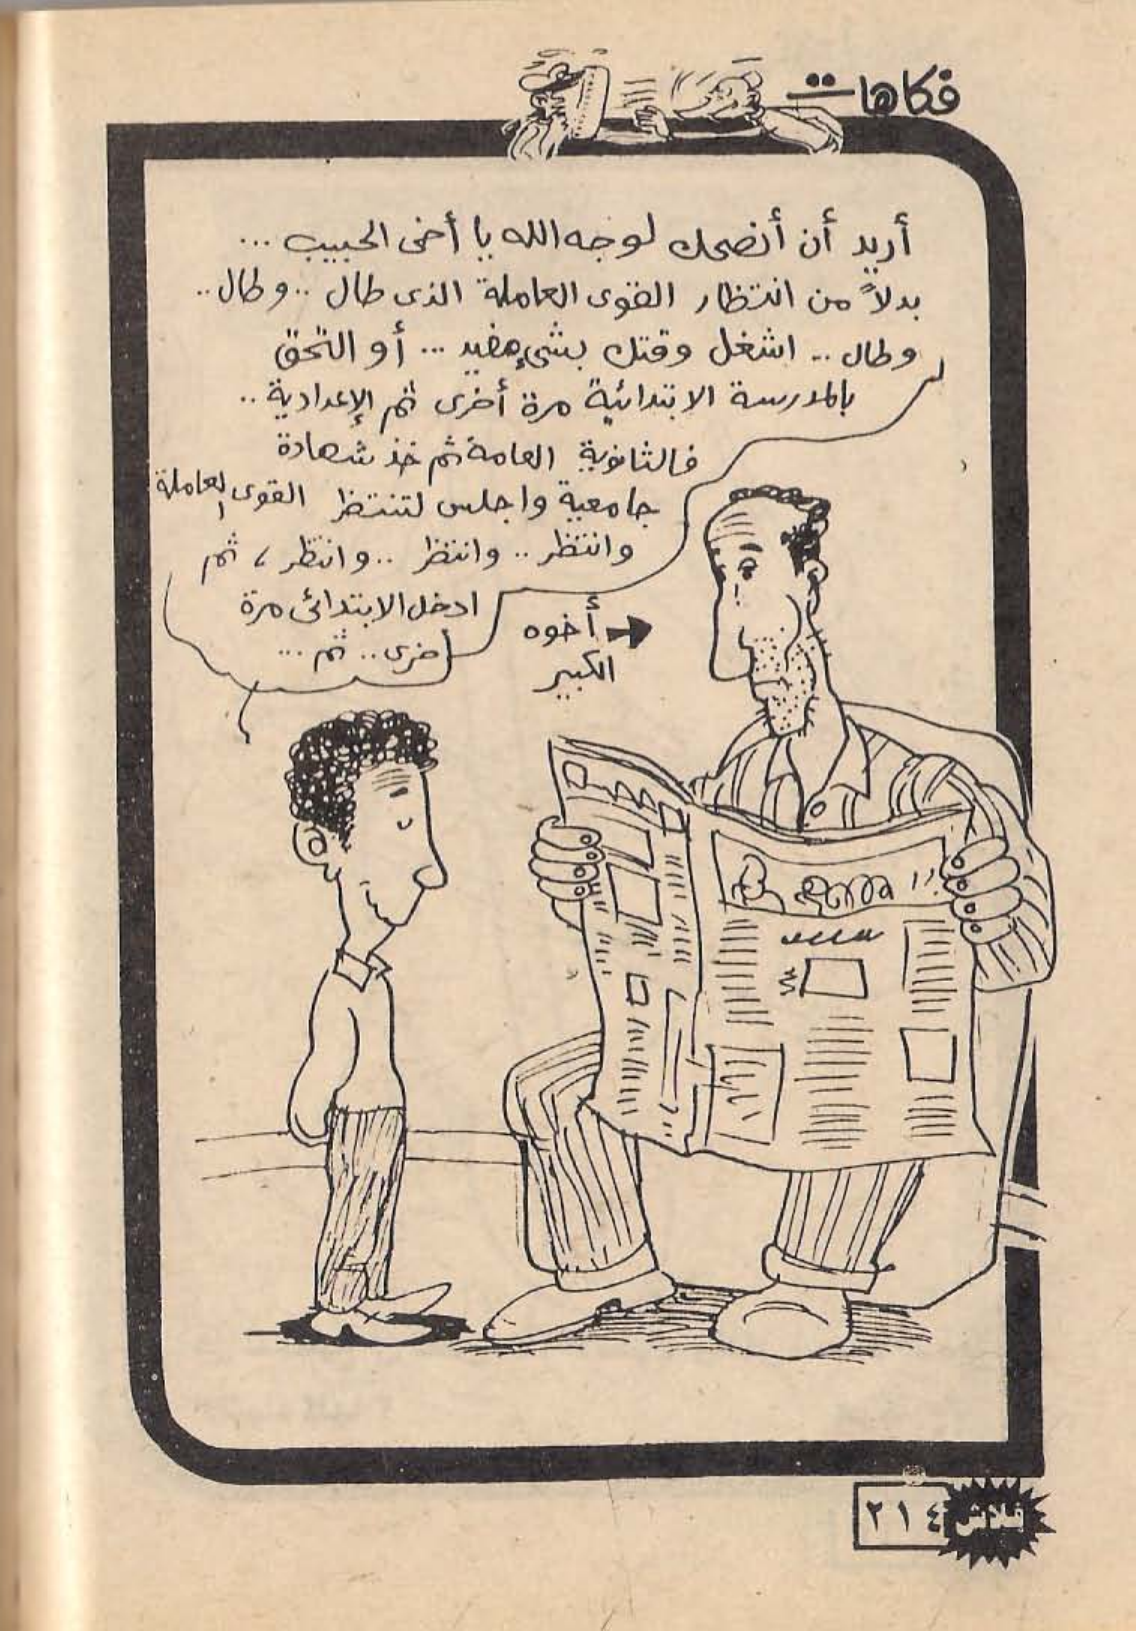 فكاهات
أريد أن أنصحك لوجه الله يا أخى الحبيب ...
بدلاً من انتظار القوى العاملة الذى طال .. وطال ..
وطال .. اشغل وقتك بشىء مفيد ... أو التحق
بالمدرسة الابتدائية مرة أخرى ثم الإعدادية ..
فالثانوية العامة ثم خذ شهادة
جامعية واجلس لتنتظر القوى العاملة
وانتظر .. وانتظر .. وانتظر ، ثم
ادخل الابتدائى مرة
أخرى .. ثم ...
أخوه
الكبير
فلاش
٢١٤